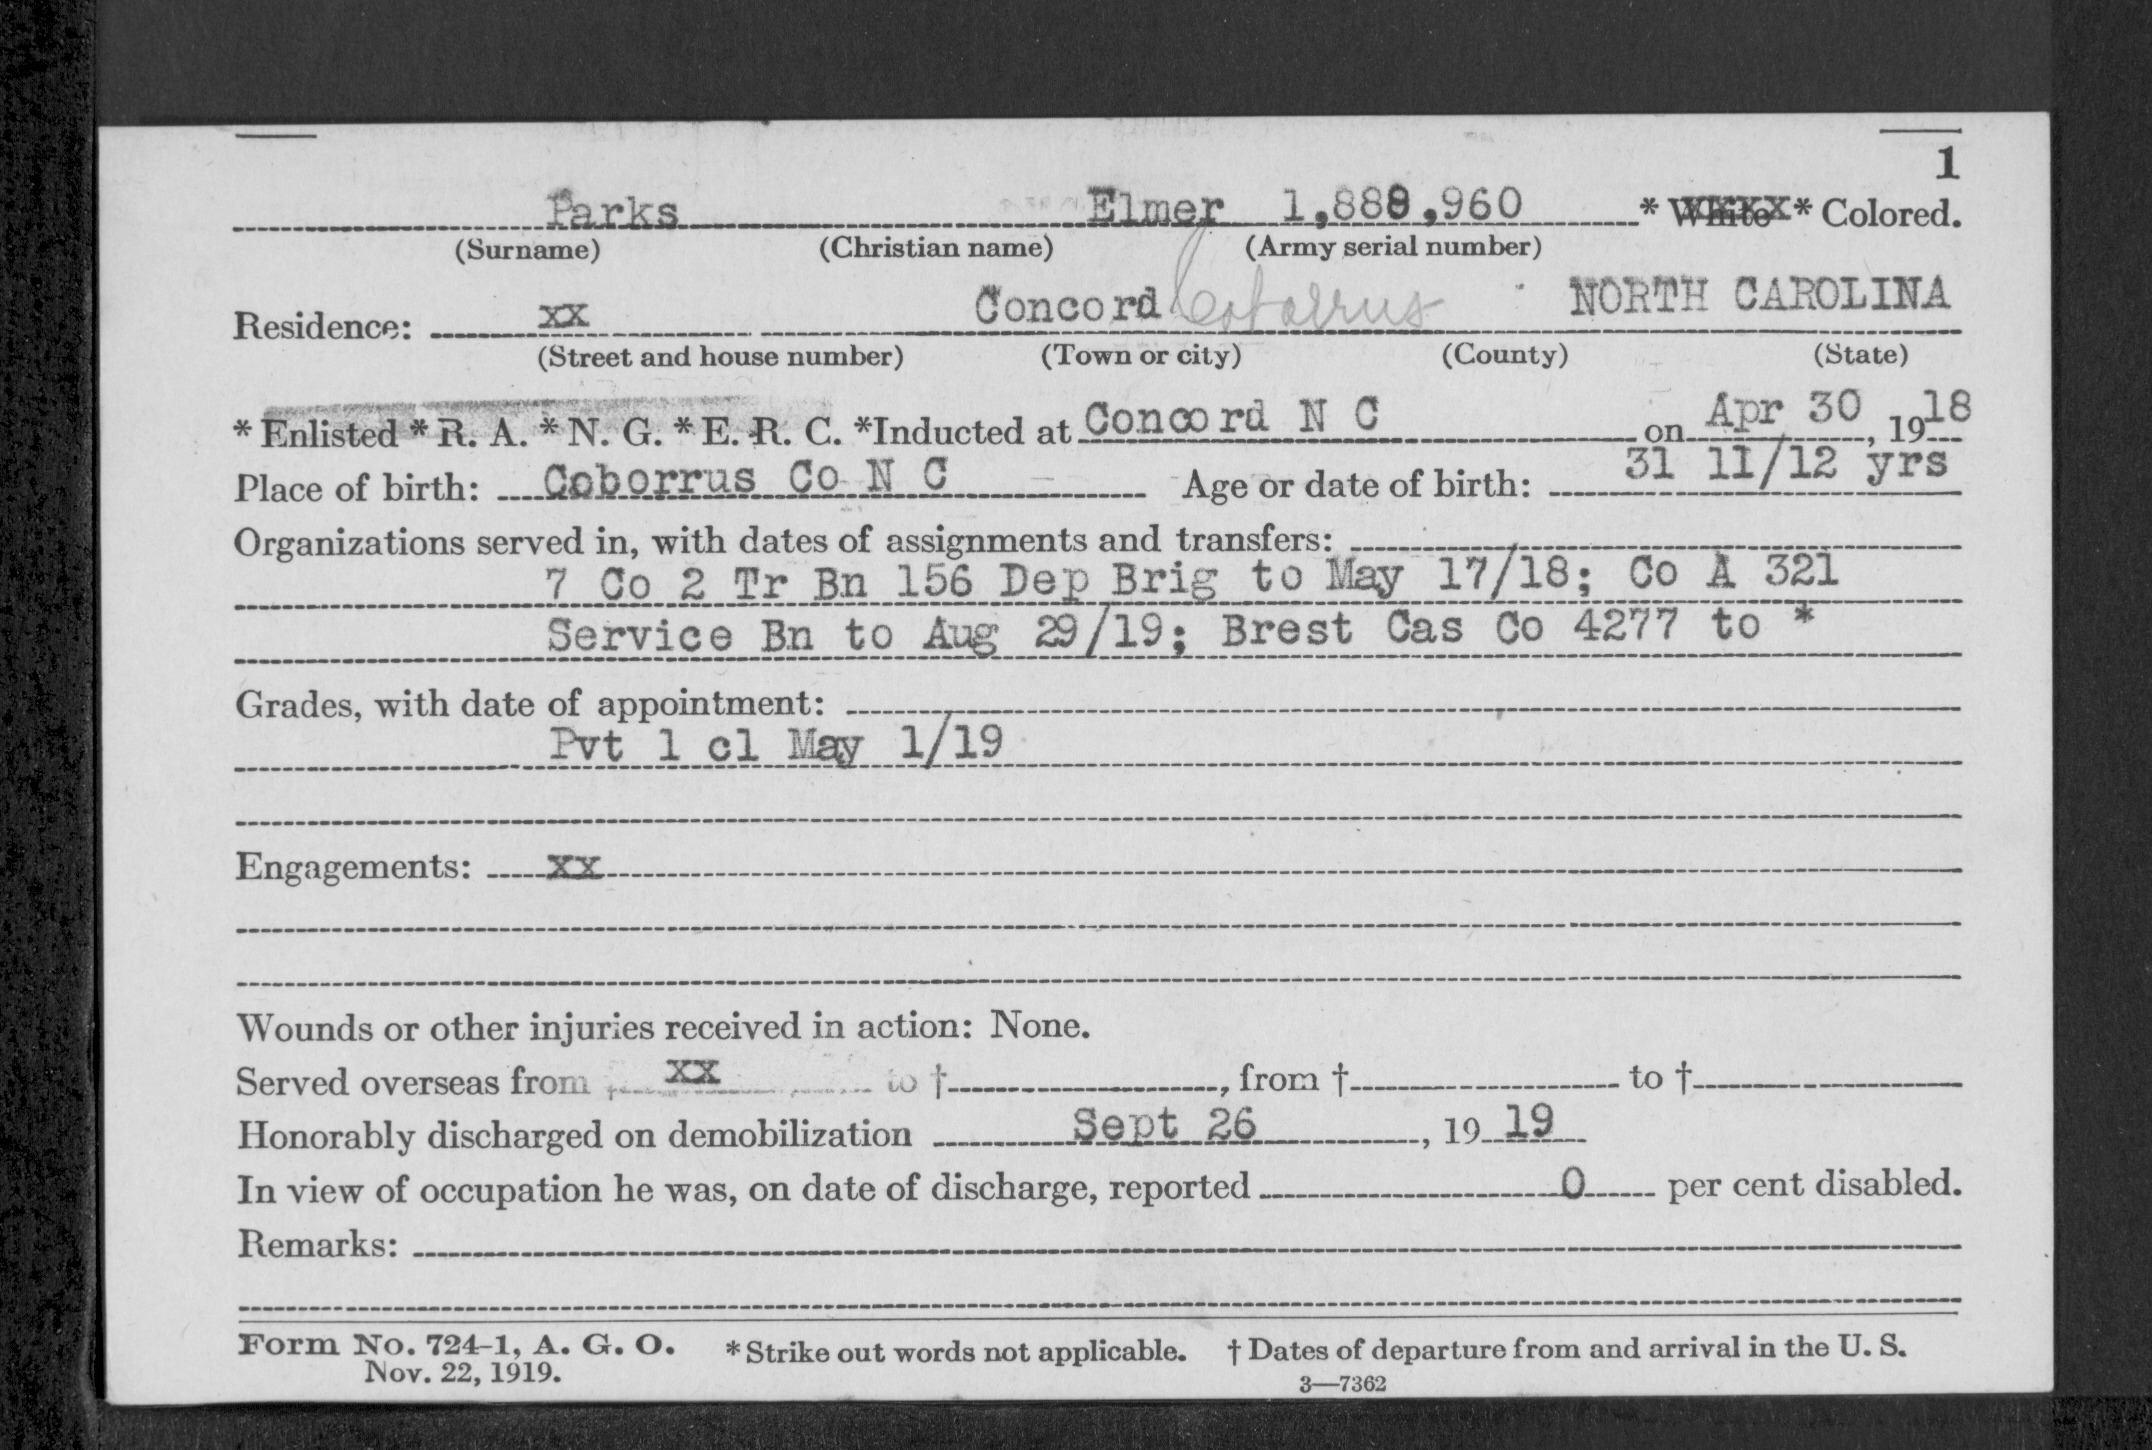 1
Parks Elmer 1,888,960 * White * Colored.
(Surname) (Christian name) (Army serial number)
Residence: xx Concord Cabarrus NORTH CAROLINA
(Street and house number) (Town or city) (County) (State)
* Enlisted * R. A. * N. G. * E. R. C. *Inducted at Concord N C on Apr 30, 1918
Place of birth: Coborrus Co N C Age or date of birth: 31 11/12 yrs
Organizations served in, with dates of assignments and transfers:
7 Co 2 Tr Bn 156 Dep Brig to May 17/18; Co A 321
Service Bn to Aug 29/19; Brest Cas Co 4277 to *
Grades, with date of appointment:
Pvt 1 cl May 1/19
Engagements: xx
Wounds or other injuries received in action: None.
Served overseas from † xx to †, from † to †
Honorably discharged on demobilization Sept 26, 19 19
In view of occupation he was, on date of discharge, reported 0 per cent disabled.
Remarks:
Form No. 724-1, A. G. O. * Strike out words not applicable. † Dates of departure from and arrival in the U. S.
Nov. 22, 1919. 3—7362